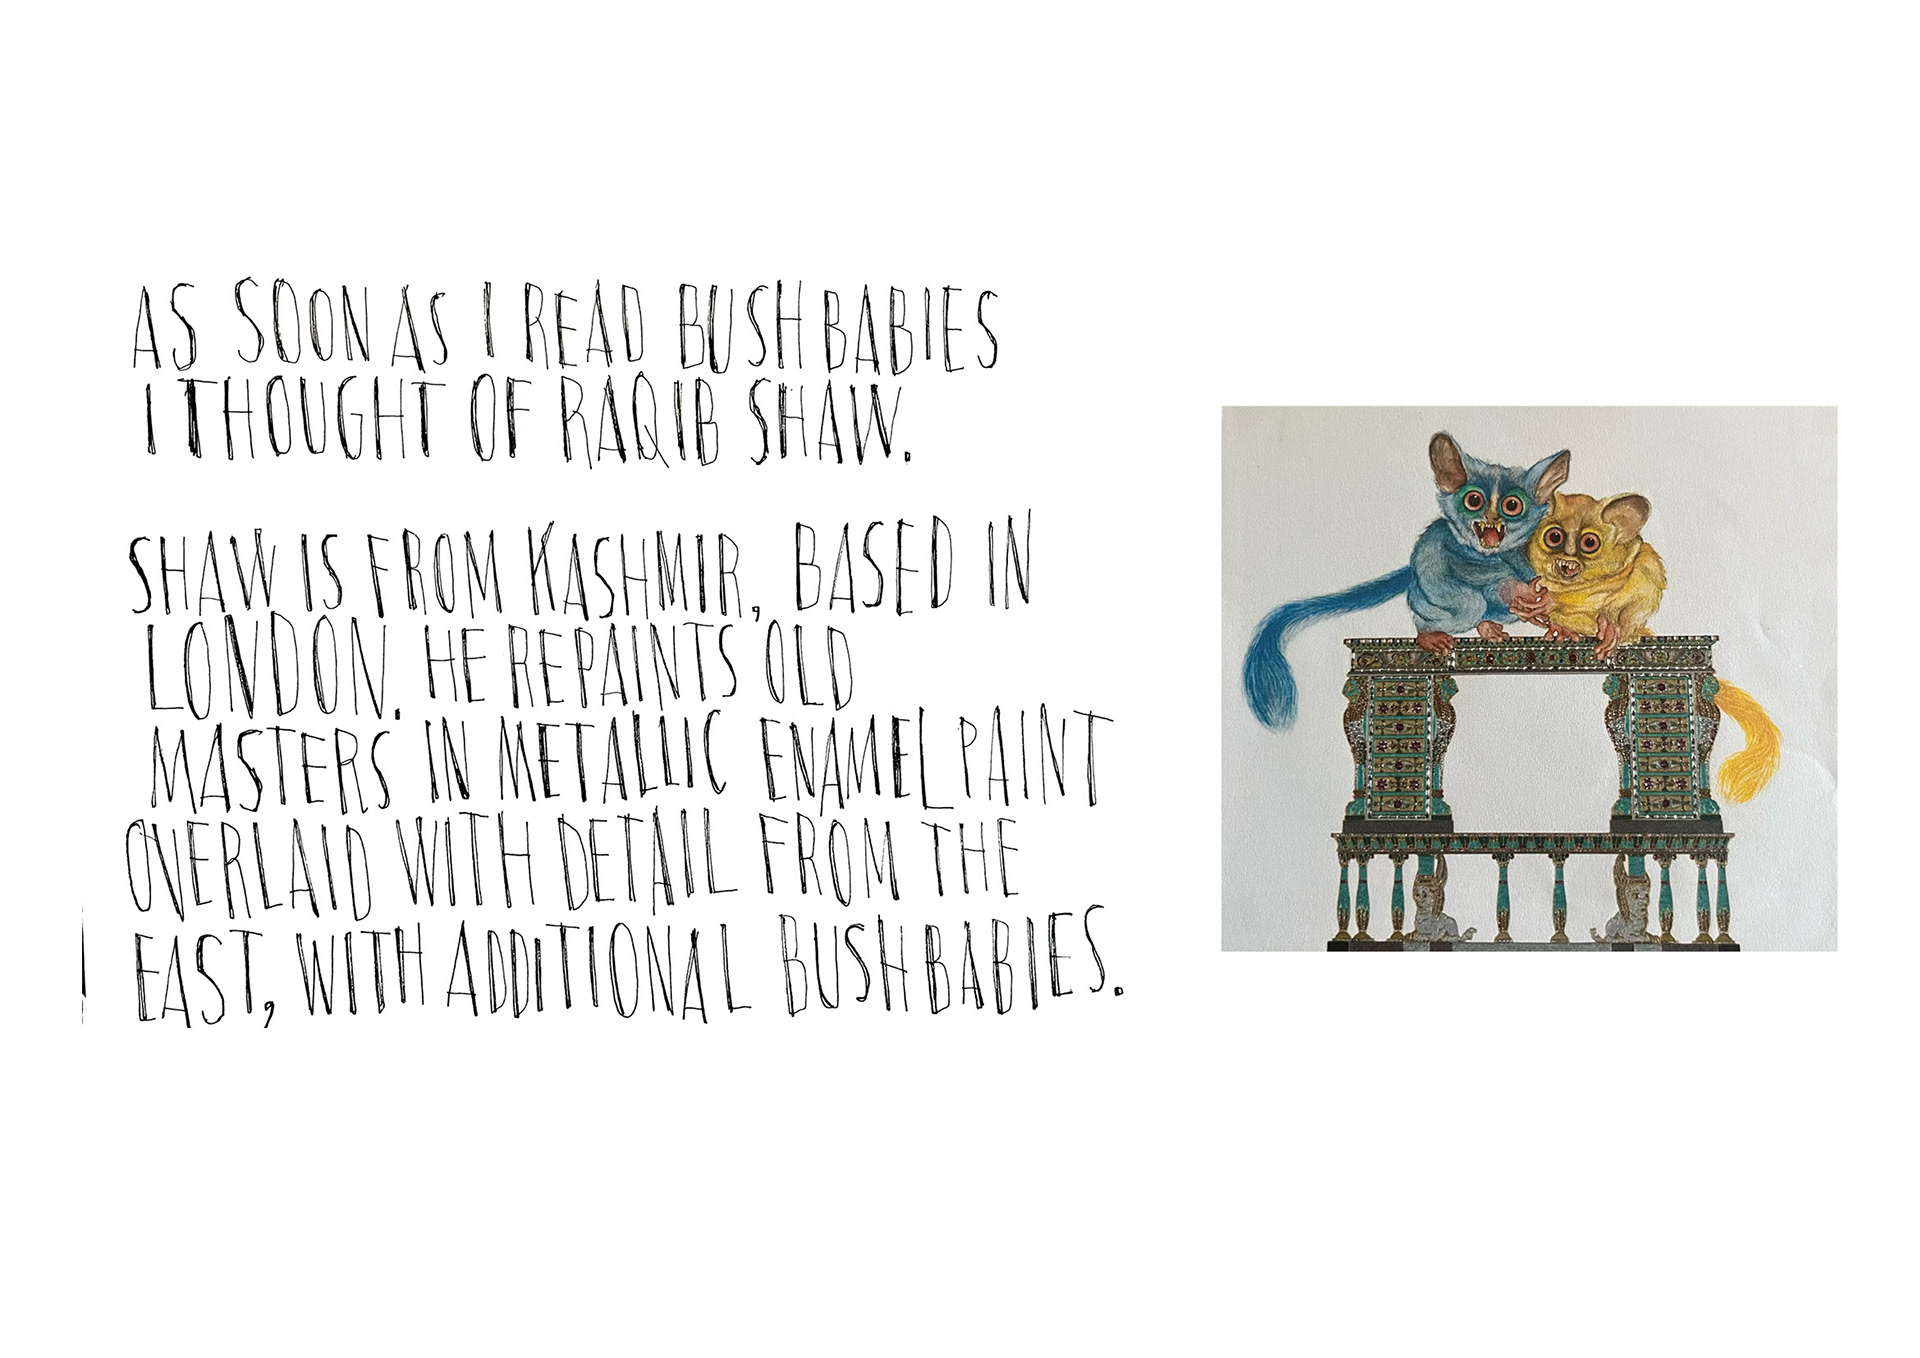 AS SOON AS I READ BUSHBABIES
I THOUGHT OF RAQIB SHAW.
SHAW IS FROM KASHMIR, BASED IN
LONDON. HE REPAINTS OLD
MASTERS IN METALLIC ENAMEL PAINT
OVERLAID WITH DETAIL FROM THE
EAST, WITH ADDITIONAL BUSHBABIES.